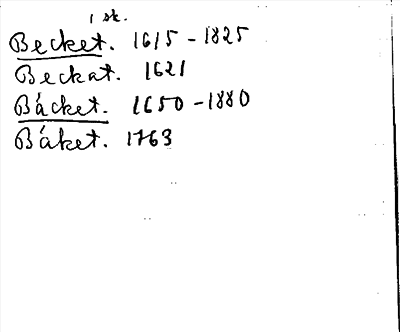 1 sk.
Becket. 1615 - 1825
Beckat. 1621
Bäcket. 1650 - 1880
Båket. 1763